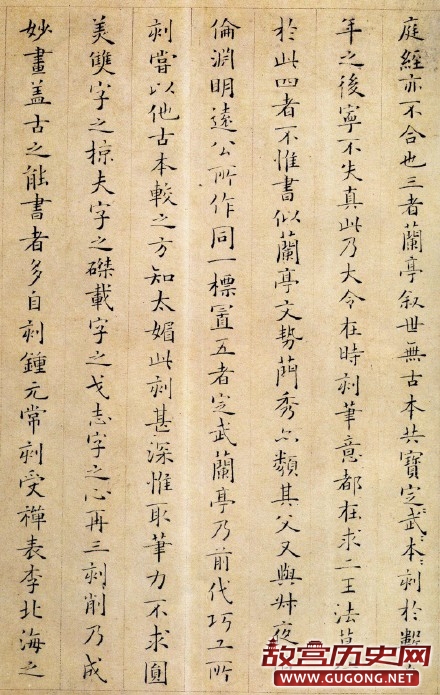 庭經亦不合也三者蘭亭叙世無古本共寶定武本刻於數
年之後寧不失真此乃大令在時刻筆意都在求二王法
於此四者不惟書似蘭亭文勢蕳秀亦類其父又與叔夜
倫淵明遠公所作同一標置五者定武蘭亭乃前代巧工所
刻嘗以他古本較之方知太媚此刻甚深惟取筆力不求圓
美雙字之掠夫字之磔載字之戈志字之心再三刻削乃成
妙畫盖古之能書者多自刻鍾元常刻受禪表李北海之
故宫历史网
WWW.GUGONG.NET